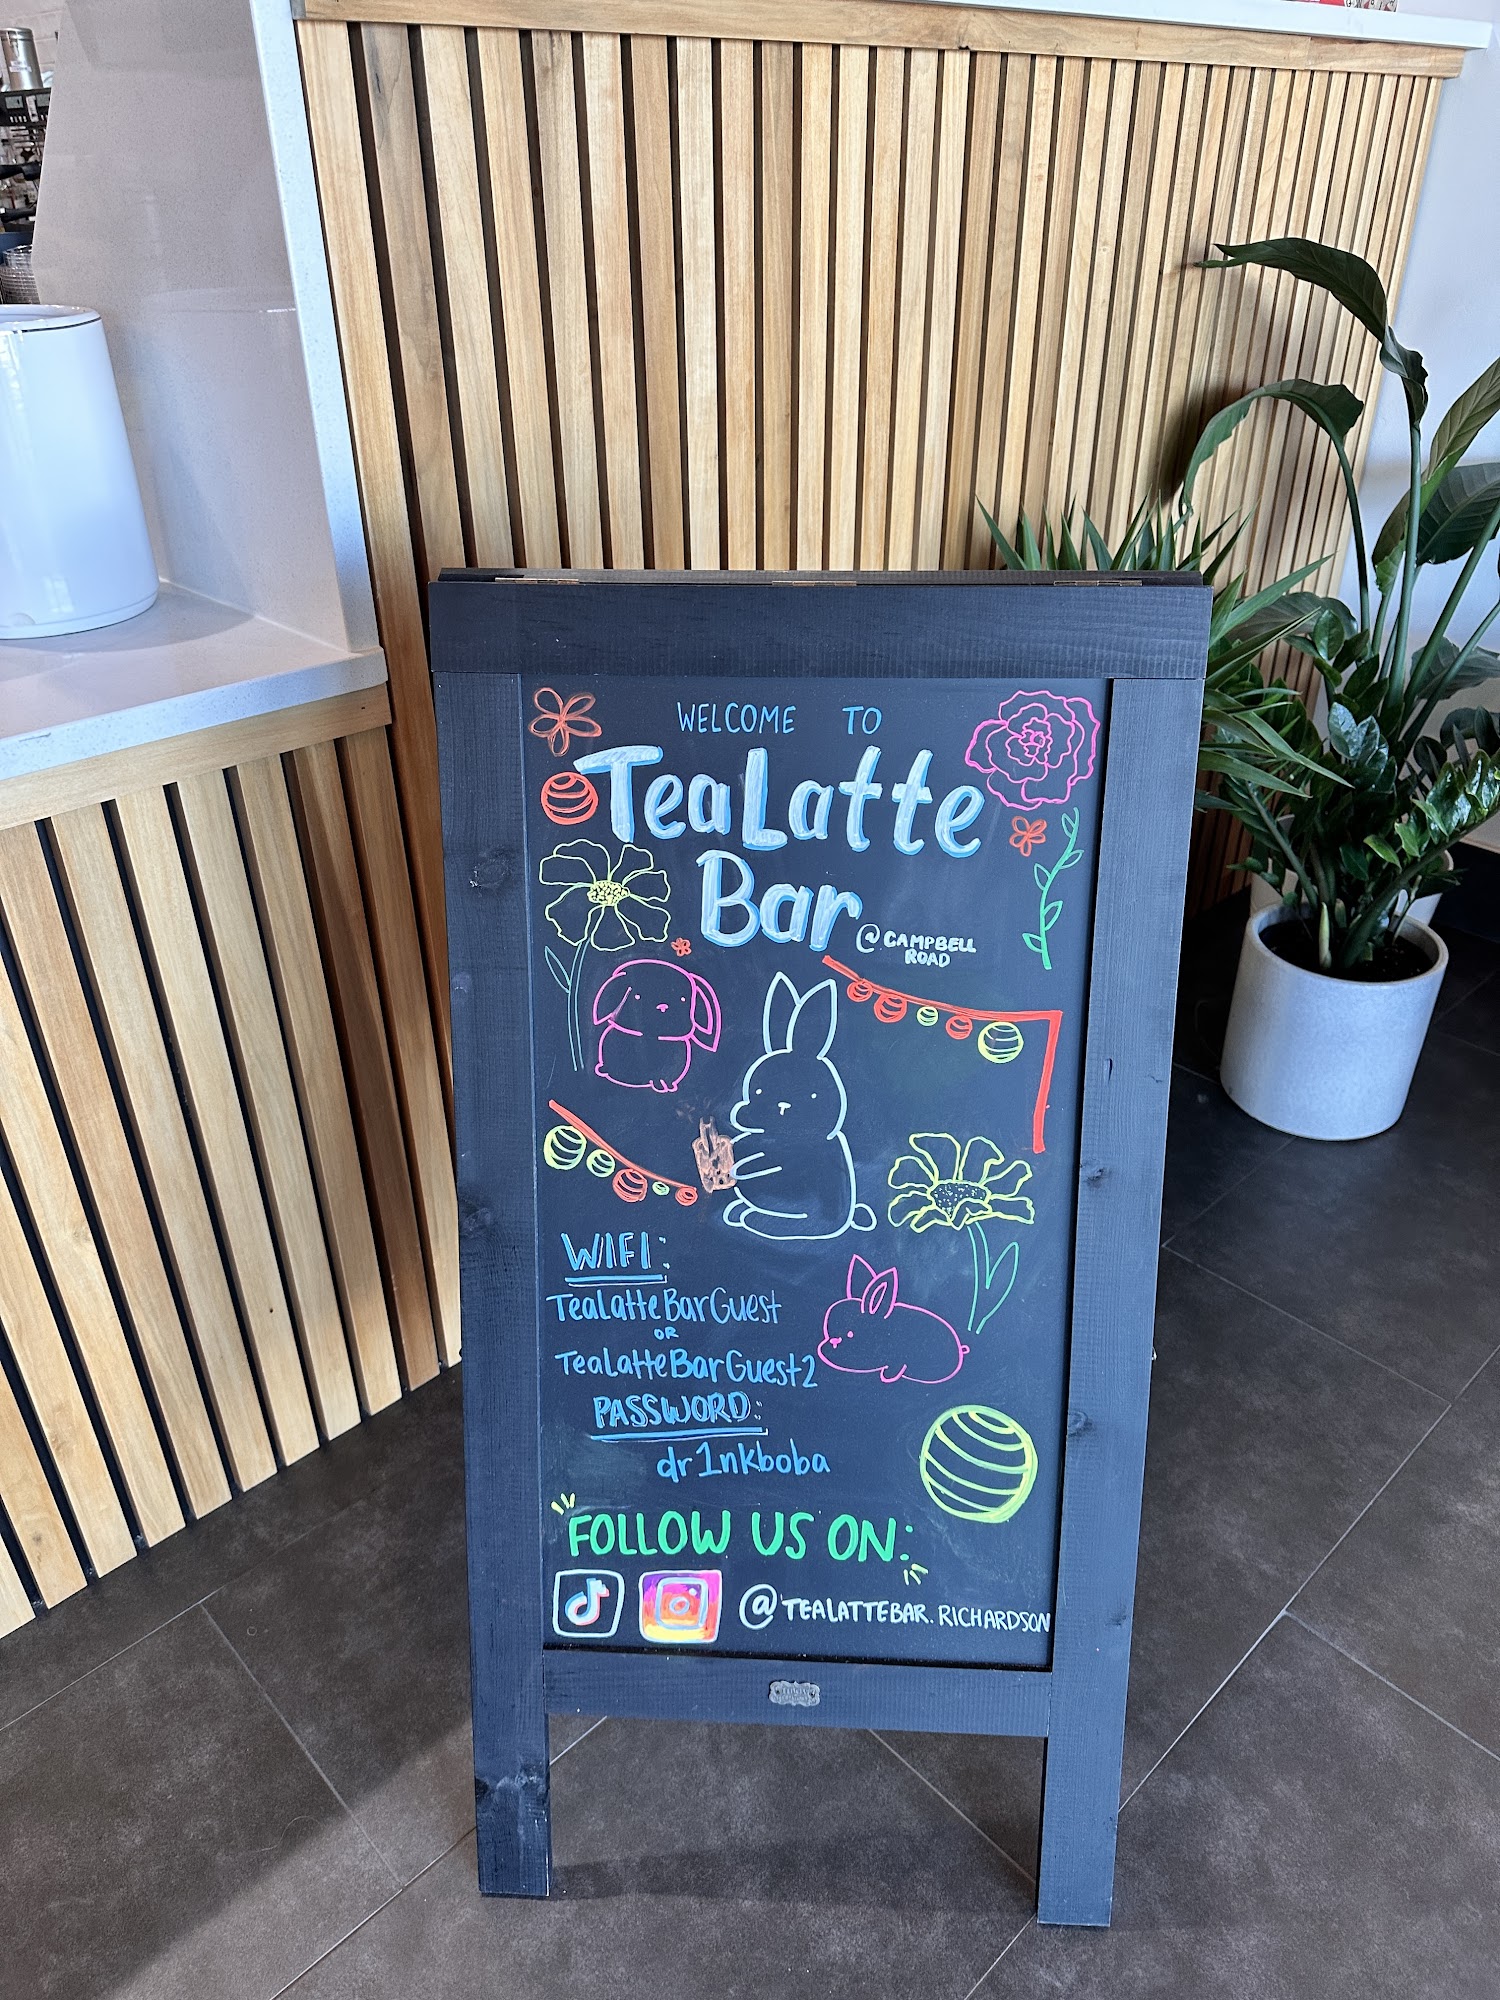 WELCOME TO
TeaLatte
Bar
@ CAMPBELL
ROAD
WIFI:
TeaLatteBarGuest
OR
TeaLatteBarGuest2
PASSWORD:
dr1nkboba
FOLLOW US ON:
@TEALATTEBAR.RICHARDSON